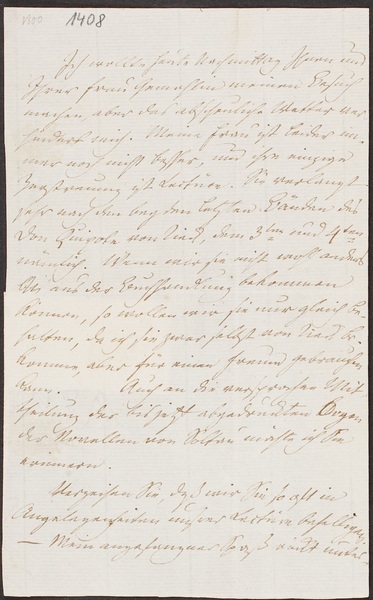 1900 1408
Ich wollte heute Nachmittag Ihnen und
Ihrer Frau Gemahlin meinen Besuch
machen, aber das abscheuliche Wetter ver
hindert mich. Meine Frau ist leider im
mer noch nicht besser, und ihre einzige
Zerstreuung ist Lectüre. Sie verlangt
sehr nach den beyden letzten Bänden des
Don Quixote von Tieck, dem 3ten und 4ten
nämlich. Wenn wir sie nicht wohl anders
als aus der bekommen
können, so wollen wir sie nur gleich be
halten, da ich sie zwar selbst von Tieck be
komme, aber für einen Freund gebrauchen
kann. Auch an die versprochne Mit
theilung der bis jetzt abgedruckten Bogen
der Novellen von Soltau möchte ich Sie
erinnern.
Verzeihen Sie, daß wir Sie so oft in
Angelegenheiten unsrer Lectüre behelligen,
— Mein angefangner Spaß rückt unter-